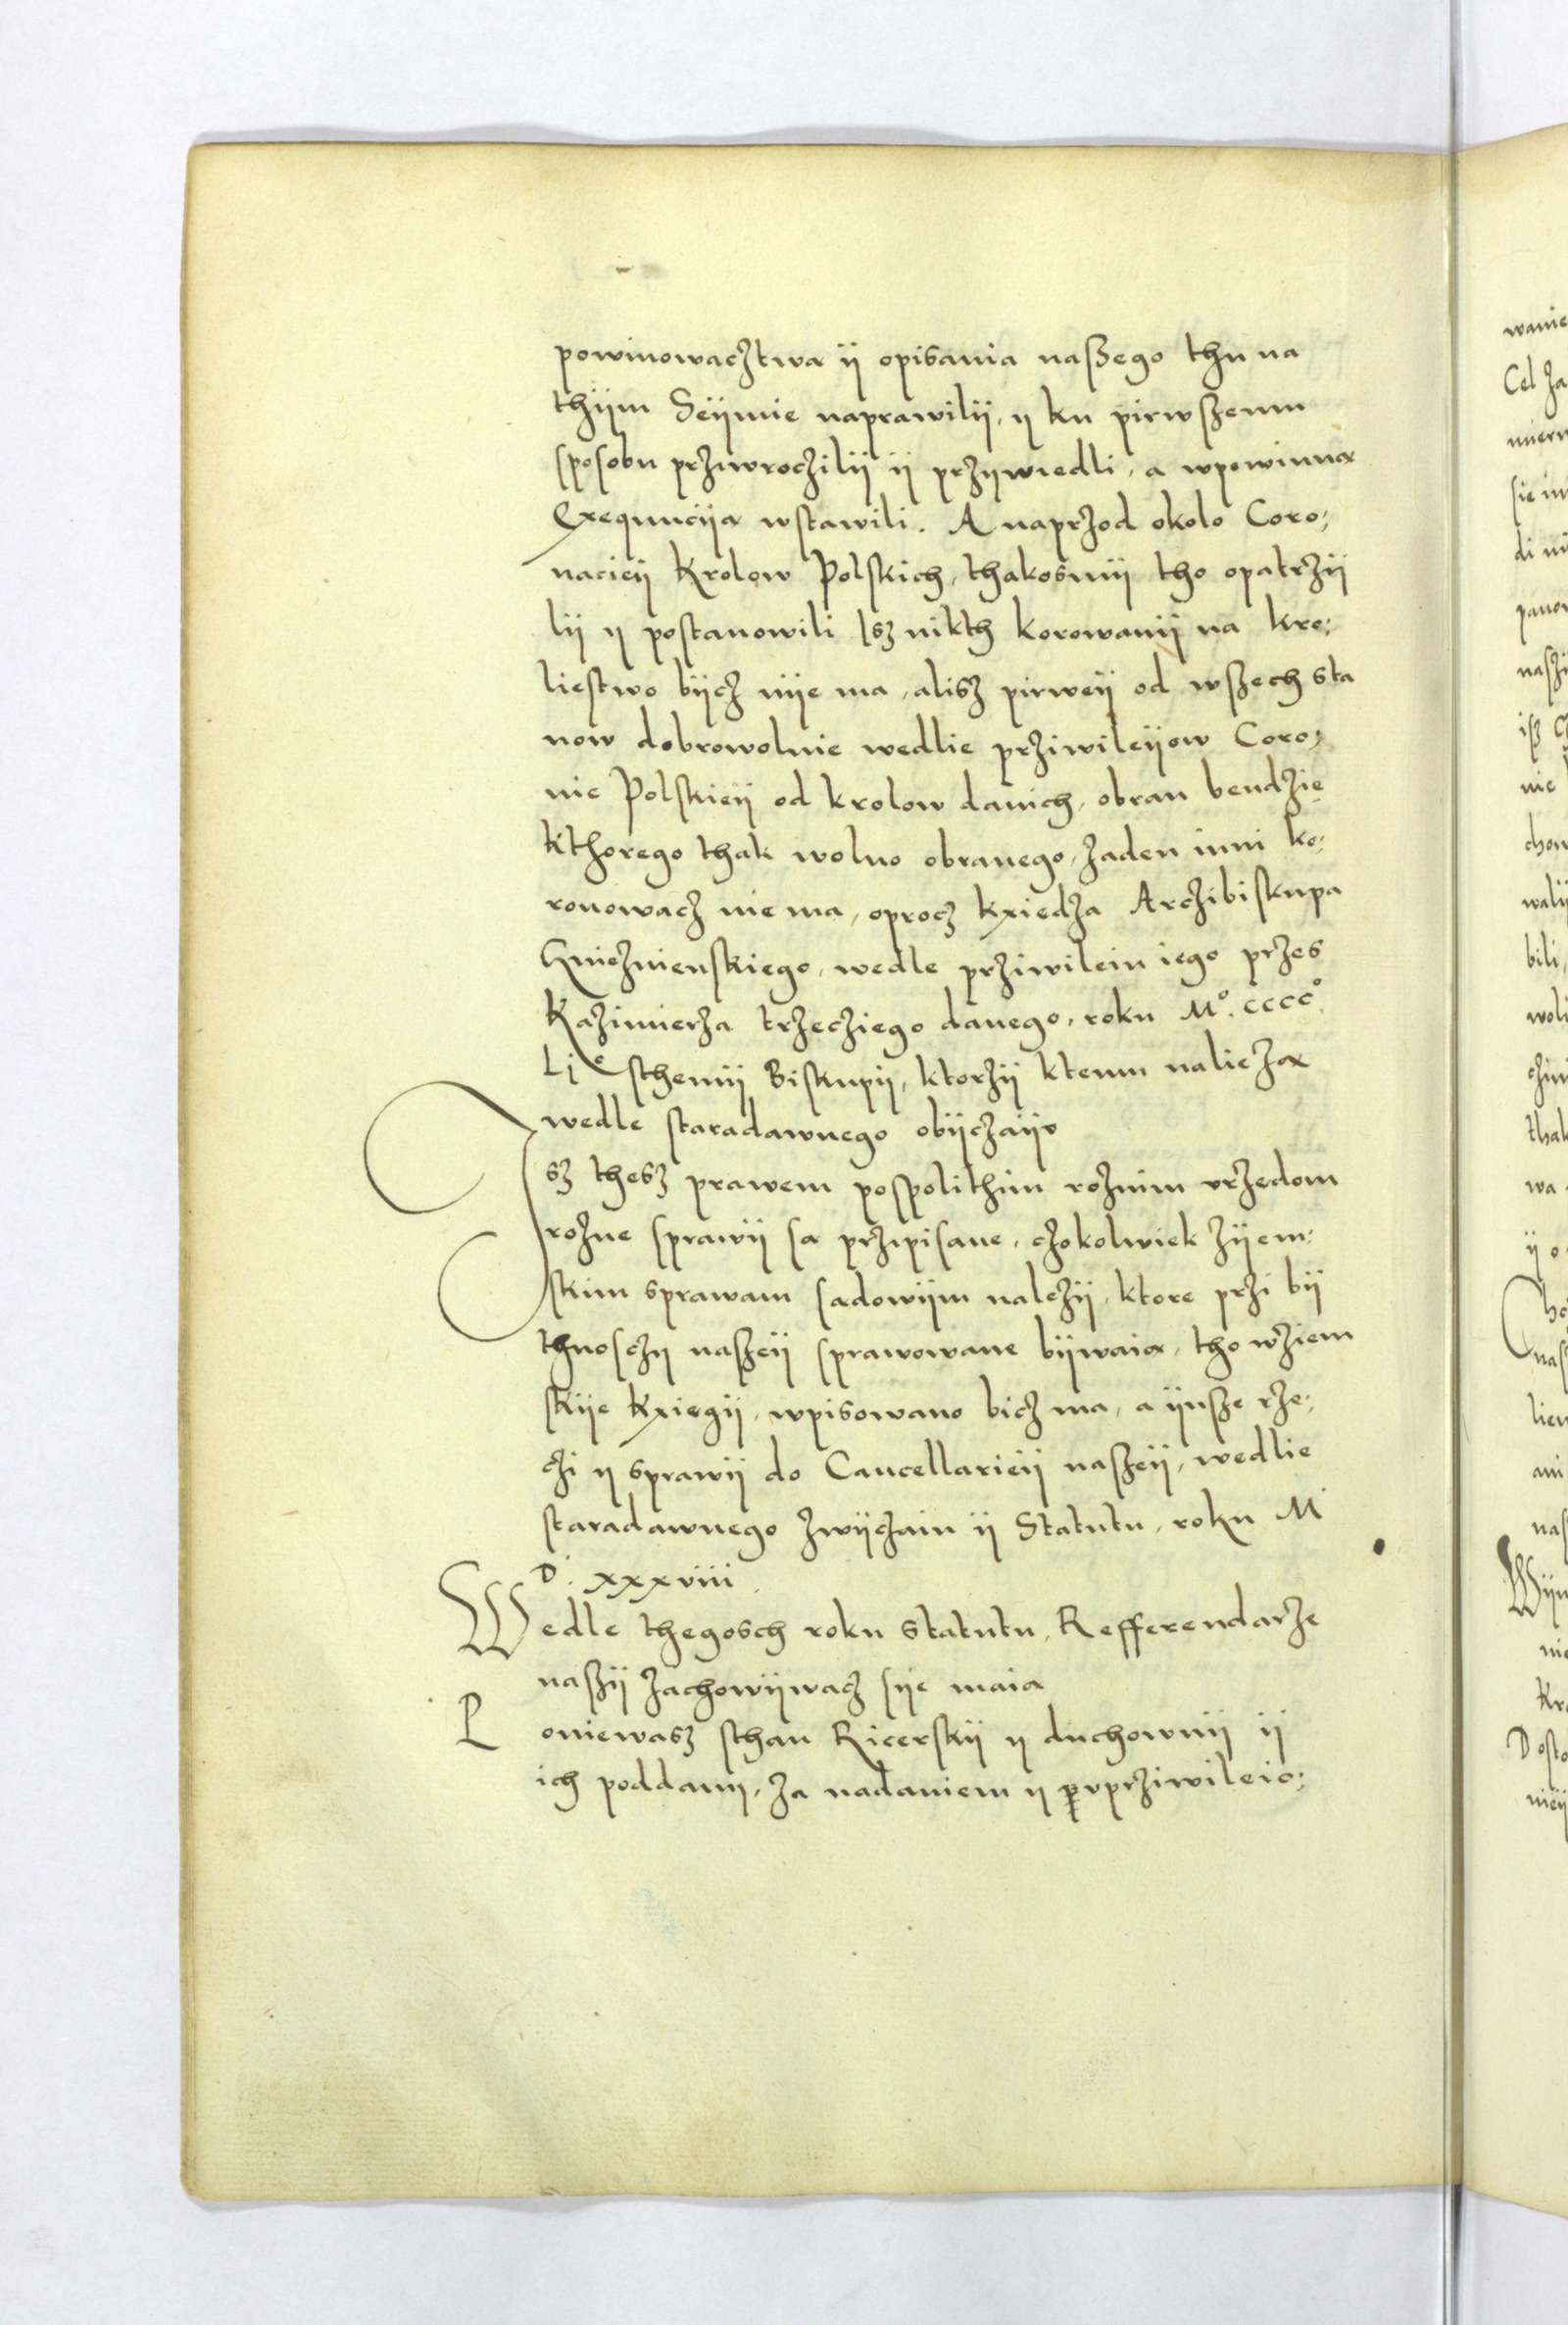 powinowacztwa ÿ opisania naszego thu na
thÿm Seÿmie naprawilÿ, y ku pirwszemu
sposobu przÿwroczilÿ ÿ przÿwiedli, a wpowinna
Exequucÿa wstawili. A naprzod okolo Coro;
nacieÿ Krolow Polskich, thakosmÿ tho opatrzÿ
lÿ y postanowili Isz nikth korowanÿ na kro;
liestwo bÿcz nÿe ma, alisz pirweÿ od wszech sta
now dobrowolnie wedlie prziwileÿow Coro;
nie Polskieÿ od krolow danich, obran bendzie
kthorego thak wolno obranego, zaden inni ko;
ronowacz nie ma, oprocz kxiedza Arczibiskupa
Gnieznienskiego, wedle prziwileiu iego przes
Kazimierza trzecziego danego, roku Mº. ccccº.
Lj° sthemÿ Biskupÿ, ktorzÿ ktemu naliezа
wedle staradawnego obÿczaÿv
Jsz thesz prawem pospolithim roznim vrzedom
rozne sprawÿ sa przipisane, czokolwiek zÿem;
skim sprawam sadowÿm nalezÿ, ktore przi bÿ
thnosczy naszeÿ sprawowane bÿwaia, tho wziem
skÿe kxiegÿ, wpisowano bicz ma, a ÿnsze rze;
czi y sprawÿ do Cancellarieÿ naszeÿ, wedlie
staradawnego zwÿczaiu ÿ Statutu, roku M
D. xxxviii.
Wedle thegosch roku statutu, Refferendarze
naszÿ zachowÿwacz sÿe maia
Poniewasz sthan Ricerskÿ y duchownÿ ÿ
ich poddani, za nadaniem y vprziwileio;
wanie
Cel za
sie
di
nie
bili,
thak
wa
ÿ o